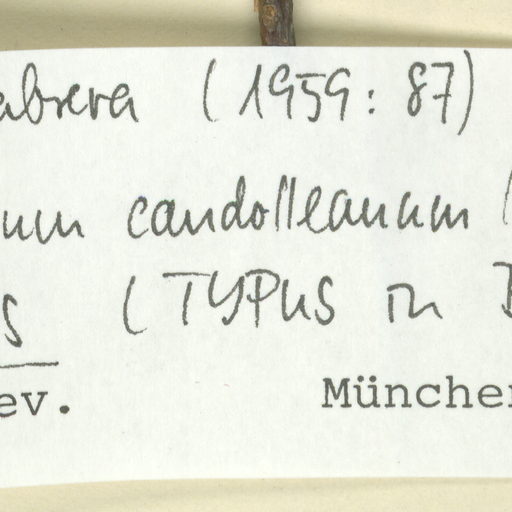 abrera (1959: 87)
um candolleanum (
s (TYPUS in B
ev. München